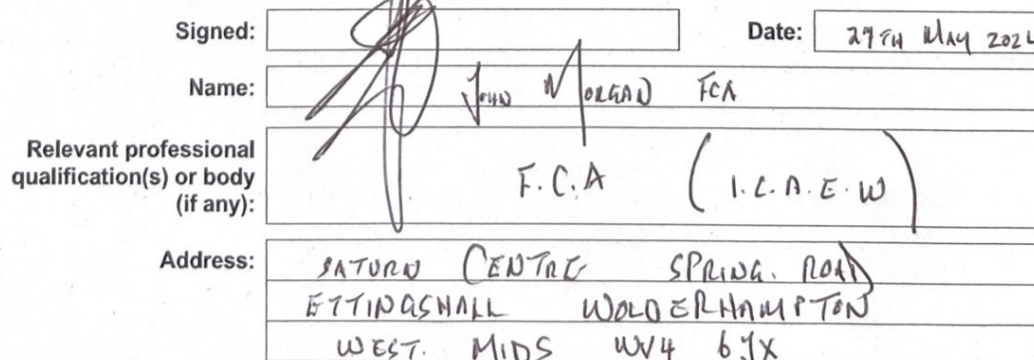 Signed: Date: 29TH MAY 2024
Name: JOHN MORGAN FCA
Relevant professional
qualification(s) or body
(if any): F.C.A (I.C.A.E.W)
Address: SATURN CENTRE SPRING. ROAD
ETTINGSHALL WOLDERHAMPTON
WEST. MIDS WV4 6JX